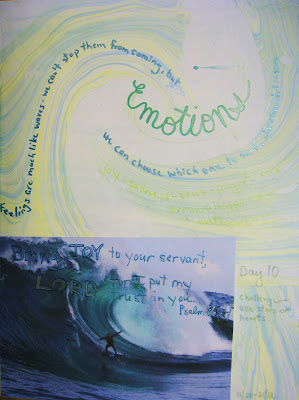 Feelings are much like waves - we can't stop them from coming, but
we can choose which one to surf
Emotions
Joy
Bring JOY to your servant,
LORD for I put my
trust in you.
Psalm
Day 10
Challenge -
use stars or
hearts